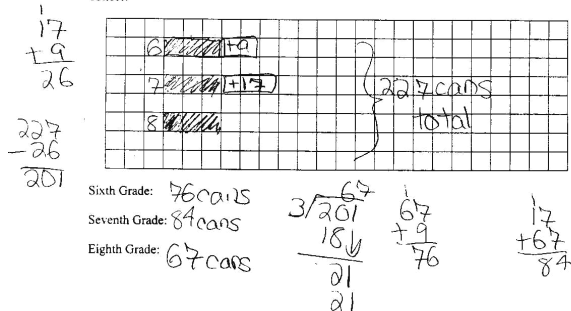 1
17
+ 9
26
227
- 26
201
6 +9
7 +17
8
227 cans
total
Sixth Grade: 76 cans
Seventh Grade: 84 cans
Eighth Grade: 67 cans
67
3/201
18↓
21
21
1
67
+ 9
76
1
17
+67
84